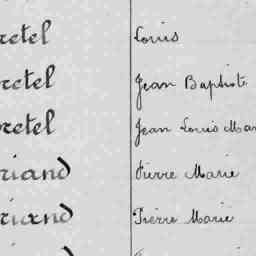 retel Louis
retel Jean Baptiste
retel Jean Louis Mar
riand Pierre Marie
riand Pierre Marie